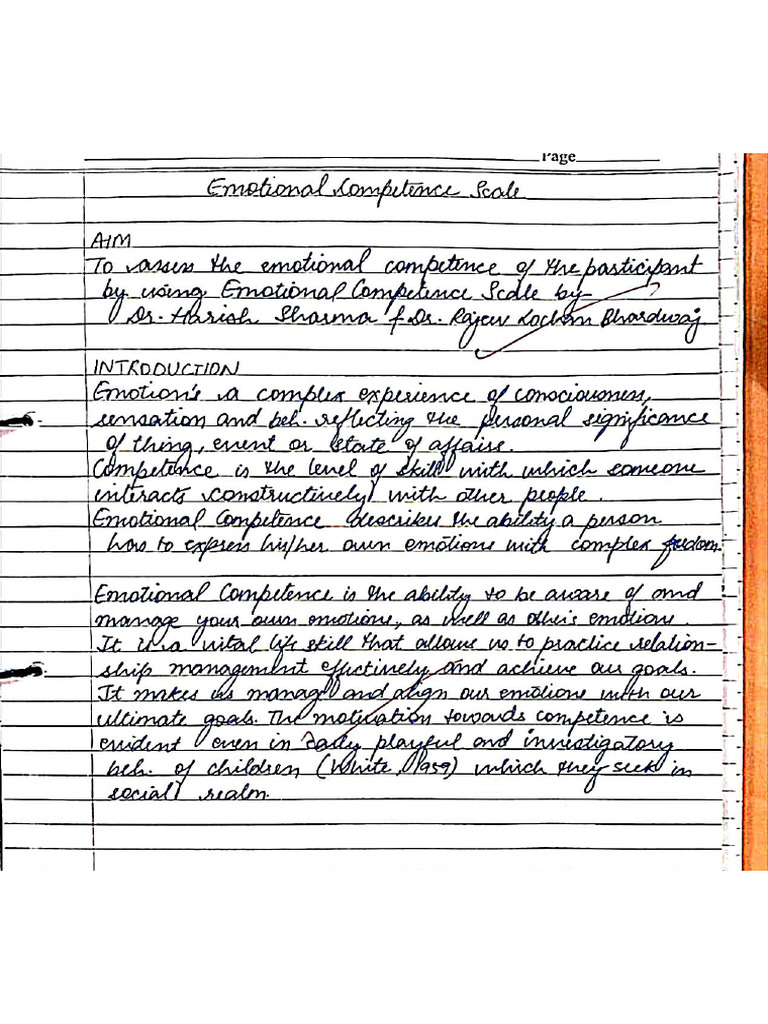 Page
Emotional Competence Scale
AIM
To assess the emotional competence of the participant
by using Emotional Competence Scale by
Dr. Harish Sharma & Dr. Rajeev Lochan Bhardwaj
INTRODUCTION
Emotion's a complex experience of consciousness,
sensation and beh. reflecting the personal significance
of thing, event or state of affairs.
Competence is the level of skill with which someone
interacts constructively with other people.
Emotional Competence describes the ability a person
has to express his/her own emotions with complex freedom.
Emotional Competence is the ability to be aware of and
manage your own emotions, as well as other's emotions.
It is a vital life skill that allows us to practice relation-
ship management effectively and achieve our goals.
It makes us manage and align our emotions with our
ultimate goals. The motivation towards competence is
evident even in early playful and investigatory
beh. of children (White, 1959) which they seek in
social realm.